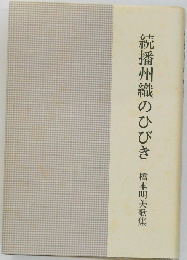 続播州織のひびき
橋本明美歌集